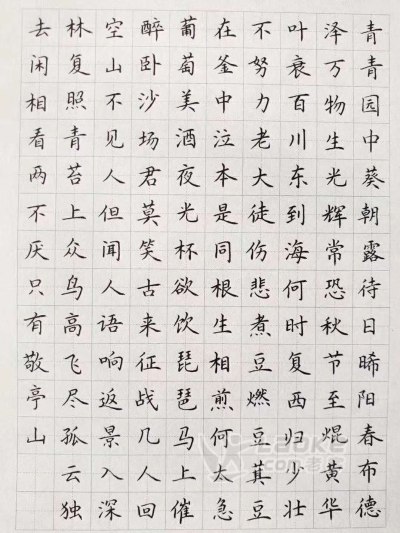 青青园中葵朝露待日晞阳春布德
泽万物生光辉常恐秋节至焜黄华
叶衰百川东到海何时复西归少壮
不努力老大徒伤悲煮豆燃豆萁豆
在釜中泣本是同根生相煎何太急
葡萄美酒夜光杯欲饮琵琶马上催
醉卧沙场君莫笑古来征战几人回
空山不见人但闻人语响返景入深
林复照青苔上众鸟高飞尽孤云独
去闲相看两不厌只有敬亭山